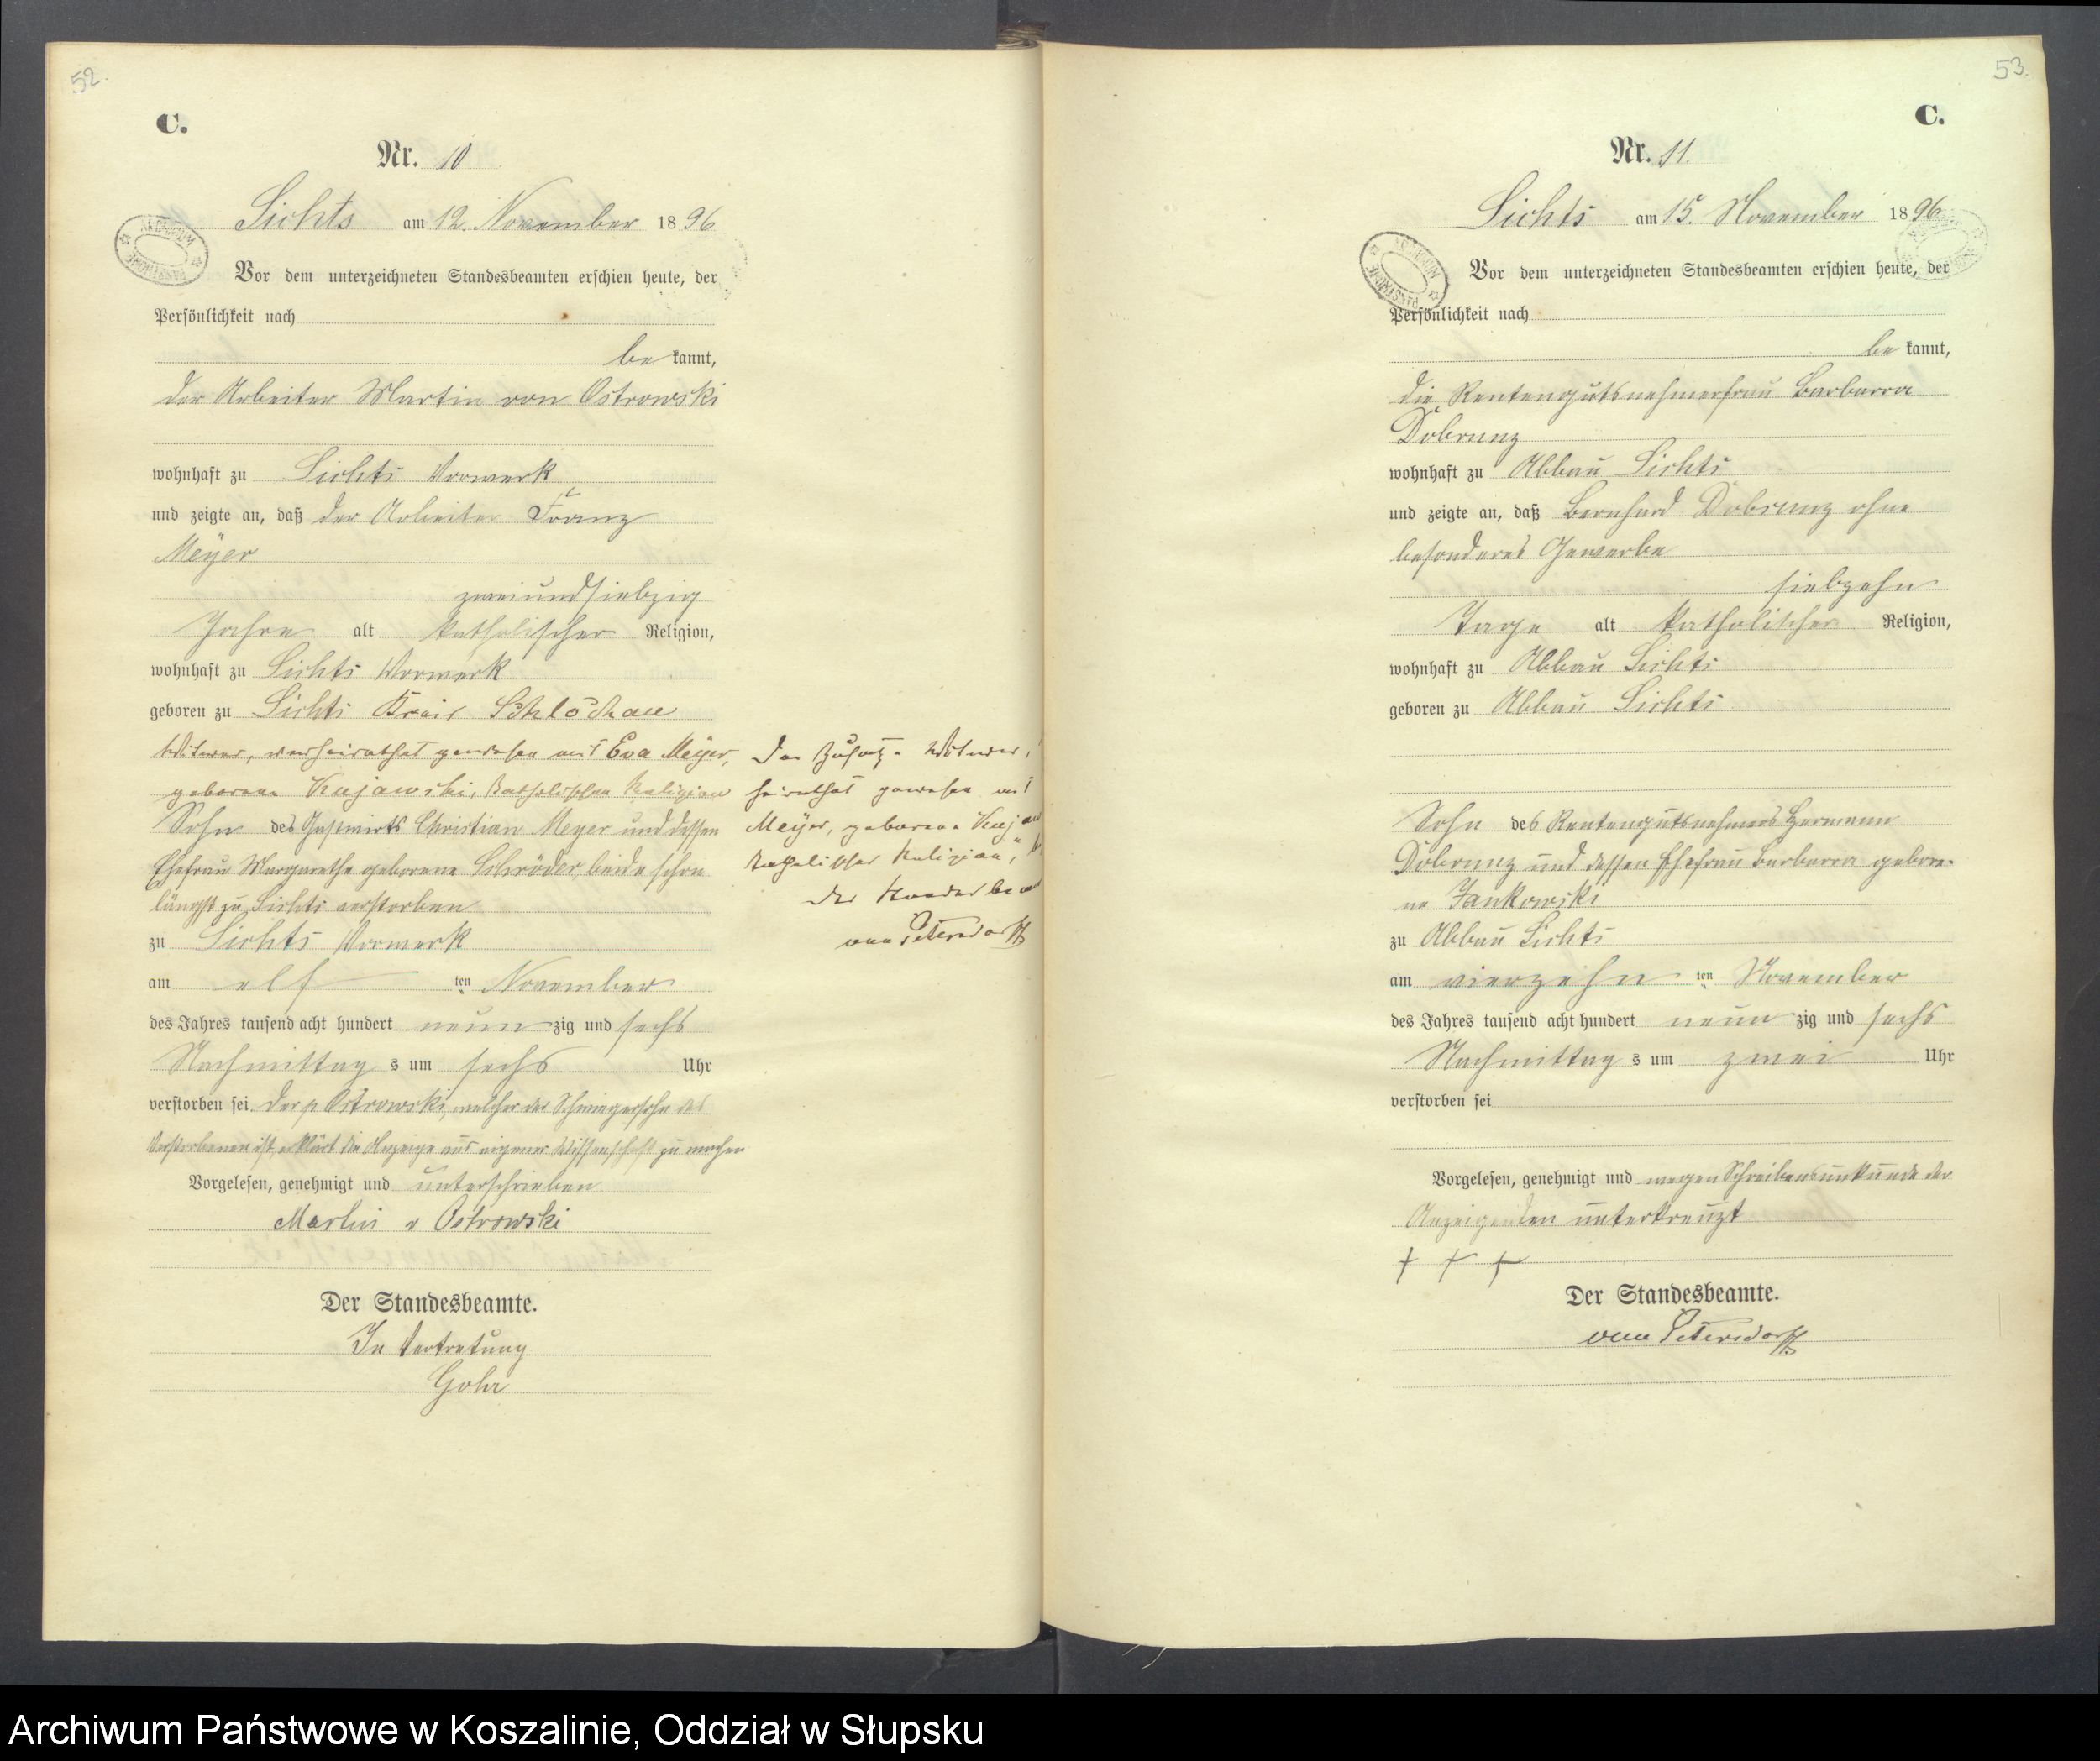 52.
C.
Nr. 10
Lichts am 12. November 1896
Vor dem unterzeichneten Standesbeamten erschien heute, der
Persönlichkeit nach
be kannt,
der Arbeiter Martin von Ostrowski
wohnhaft zu Lichts Vorwerk
und zeigte an, daß der Arbeiter Franz
Meÿer
zweiundsiebzig
Jahre alt katholischer Religion,
wohnhaft zu Lichts Vorwerk
geboren zu Lichts Kreis Schlochau
Witwer, verheirathet gewesen mit Eva Meÿer,
geborene Kujawski, katholischer Religion
Sohn des Gastwirts Christian Meyer und dessen
Ehefrau Margarethe geborene Schröder, beide schon
längst zu Lichts verstorben
zu Lichts Vorwerk
am elf ten November
des Jahres tausend acht hundert neun zig und sechs
Nachmittag s um sechs Uhr
verstorben sei. Der p Ostrowski, welcher der Schwiegersohn des
Verstorbenen ist, erklärt die Anzeige aus eigener Wissenschaft zu machen
Vorgelesen, genehmigt und unterschrieben
Martin v Ostrowski
Der Standesbeamte.
In Vertretung
Gohr
Der Zusatz: Witwer,
heirathet gewesen mit
Meÿer, geborene Kujaw
katholischer Religion,
Der Standesbeam
von Petersdorff
53.
C.
Nr. 11.
Lichts am 15. November 1896
Vor dem unterzeichneten Standesbeamten erschien heute, der
Persönlichkeit nach
be kannt,
die Rentengutsnehmerfrau Barbarra
Dobrunz
wohnhaft zu Abbau Lichts
und zeigte an, daß Bernhard Dobrunz ohne
besonderes Gewerbe
siebzehn
Tage alt katholischer Religion,
wohnhaft zu Abbau Lichts
geboren zu Abbau Lichts
Sohn des Rentengutsnehmers Hermann
Dobrunz und dessen Ehefrau Barbarra gebore-
ne Jankowski
zu Abbau Lichts
am vierzehn ten November
des Jahres tausend acht hundert neun zig und sechs
Nachmittag s um zwei Uhr
verstorben sei
Vorgelesen, genehmigt und wegen Schreibensunkunde der
Anzeigenden unterkreuzt
+ + +
Der Standesbeamte.
von Petersdorff
Archiwum Państwowe w Koszalinie, Oddział w Słupsku